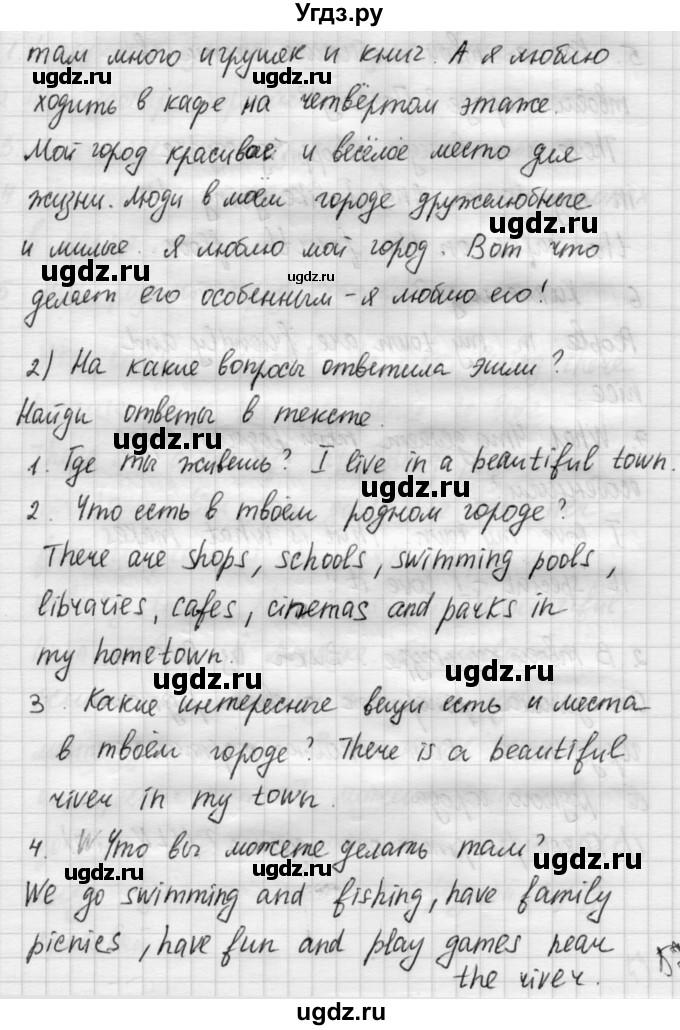 Угдз.ру
там много игрушек и книг. А я люблю
ugdz.ru ugdz.ru
ходить в кафе на четвёртом этаже.
Мой город красивое и весёлое место для
ugdz.ru
жизни. Люди в моём городе дружелюбные
ugdz.ru
и милые. Я люблю мой город. Вот что
ugdz.ru ugdz.ru
делает его особенным - я люблю его!
2) На какие вопросы ответила Эшли?
ugdz.ru
Найди ответы в тексте.
ugdz.ru
1. Где ты живешь? I live in a beautiful town.
ugdz.ru
2. Что есть в твоём родном городе?
There are shops, schools, swimming pools,
ugdz.ru
libraries, cafes, cinemas and parks in
my hometown.
ugdz.ru ugdz.ru
3. Какие интересные вещи есть и места
в твоём городе? There is a beautiful
ugdz.ru
river in my town.
4. Что вы можете делать там?
ugdz.ru ugdz.ru ugdz.ru
We go swimming and fishing, have family
picnics, have fun and play games near
the river.
ugdz.ru ugdz.ru